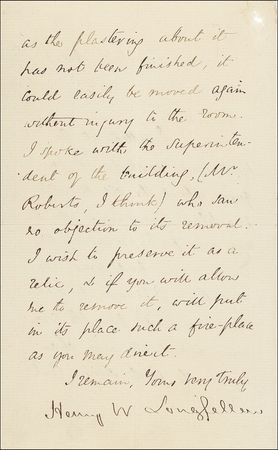 as the plastering about it
has not been finished, it
could easily be moved again
without injury to the room.
I spoke with the Superinten-
dent of the building, (Mr.
Roberts, I think) who saw
no objection to its removal.
I wish to preserve it as a
relic, & if you will allow
me to remove it, will put
in its place such a fire-place
as you may direct.
I remain, Yours very truly
Henry W Longfellow